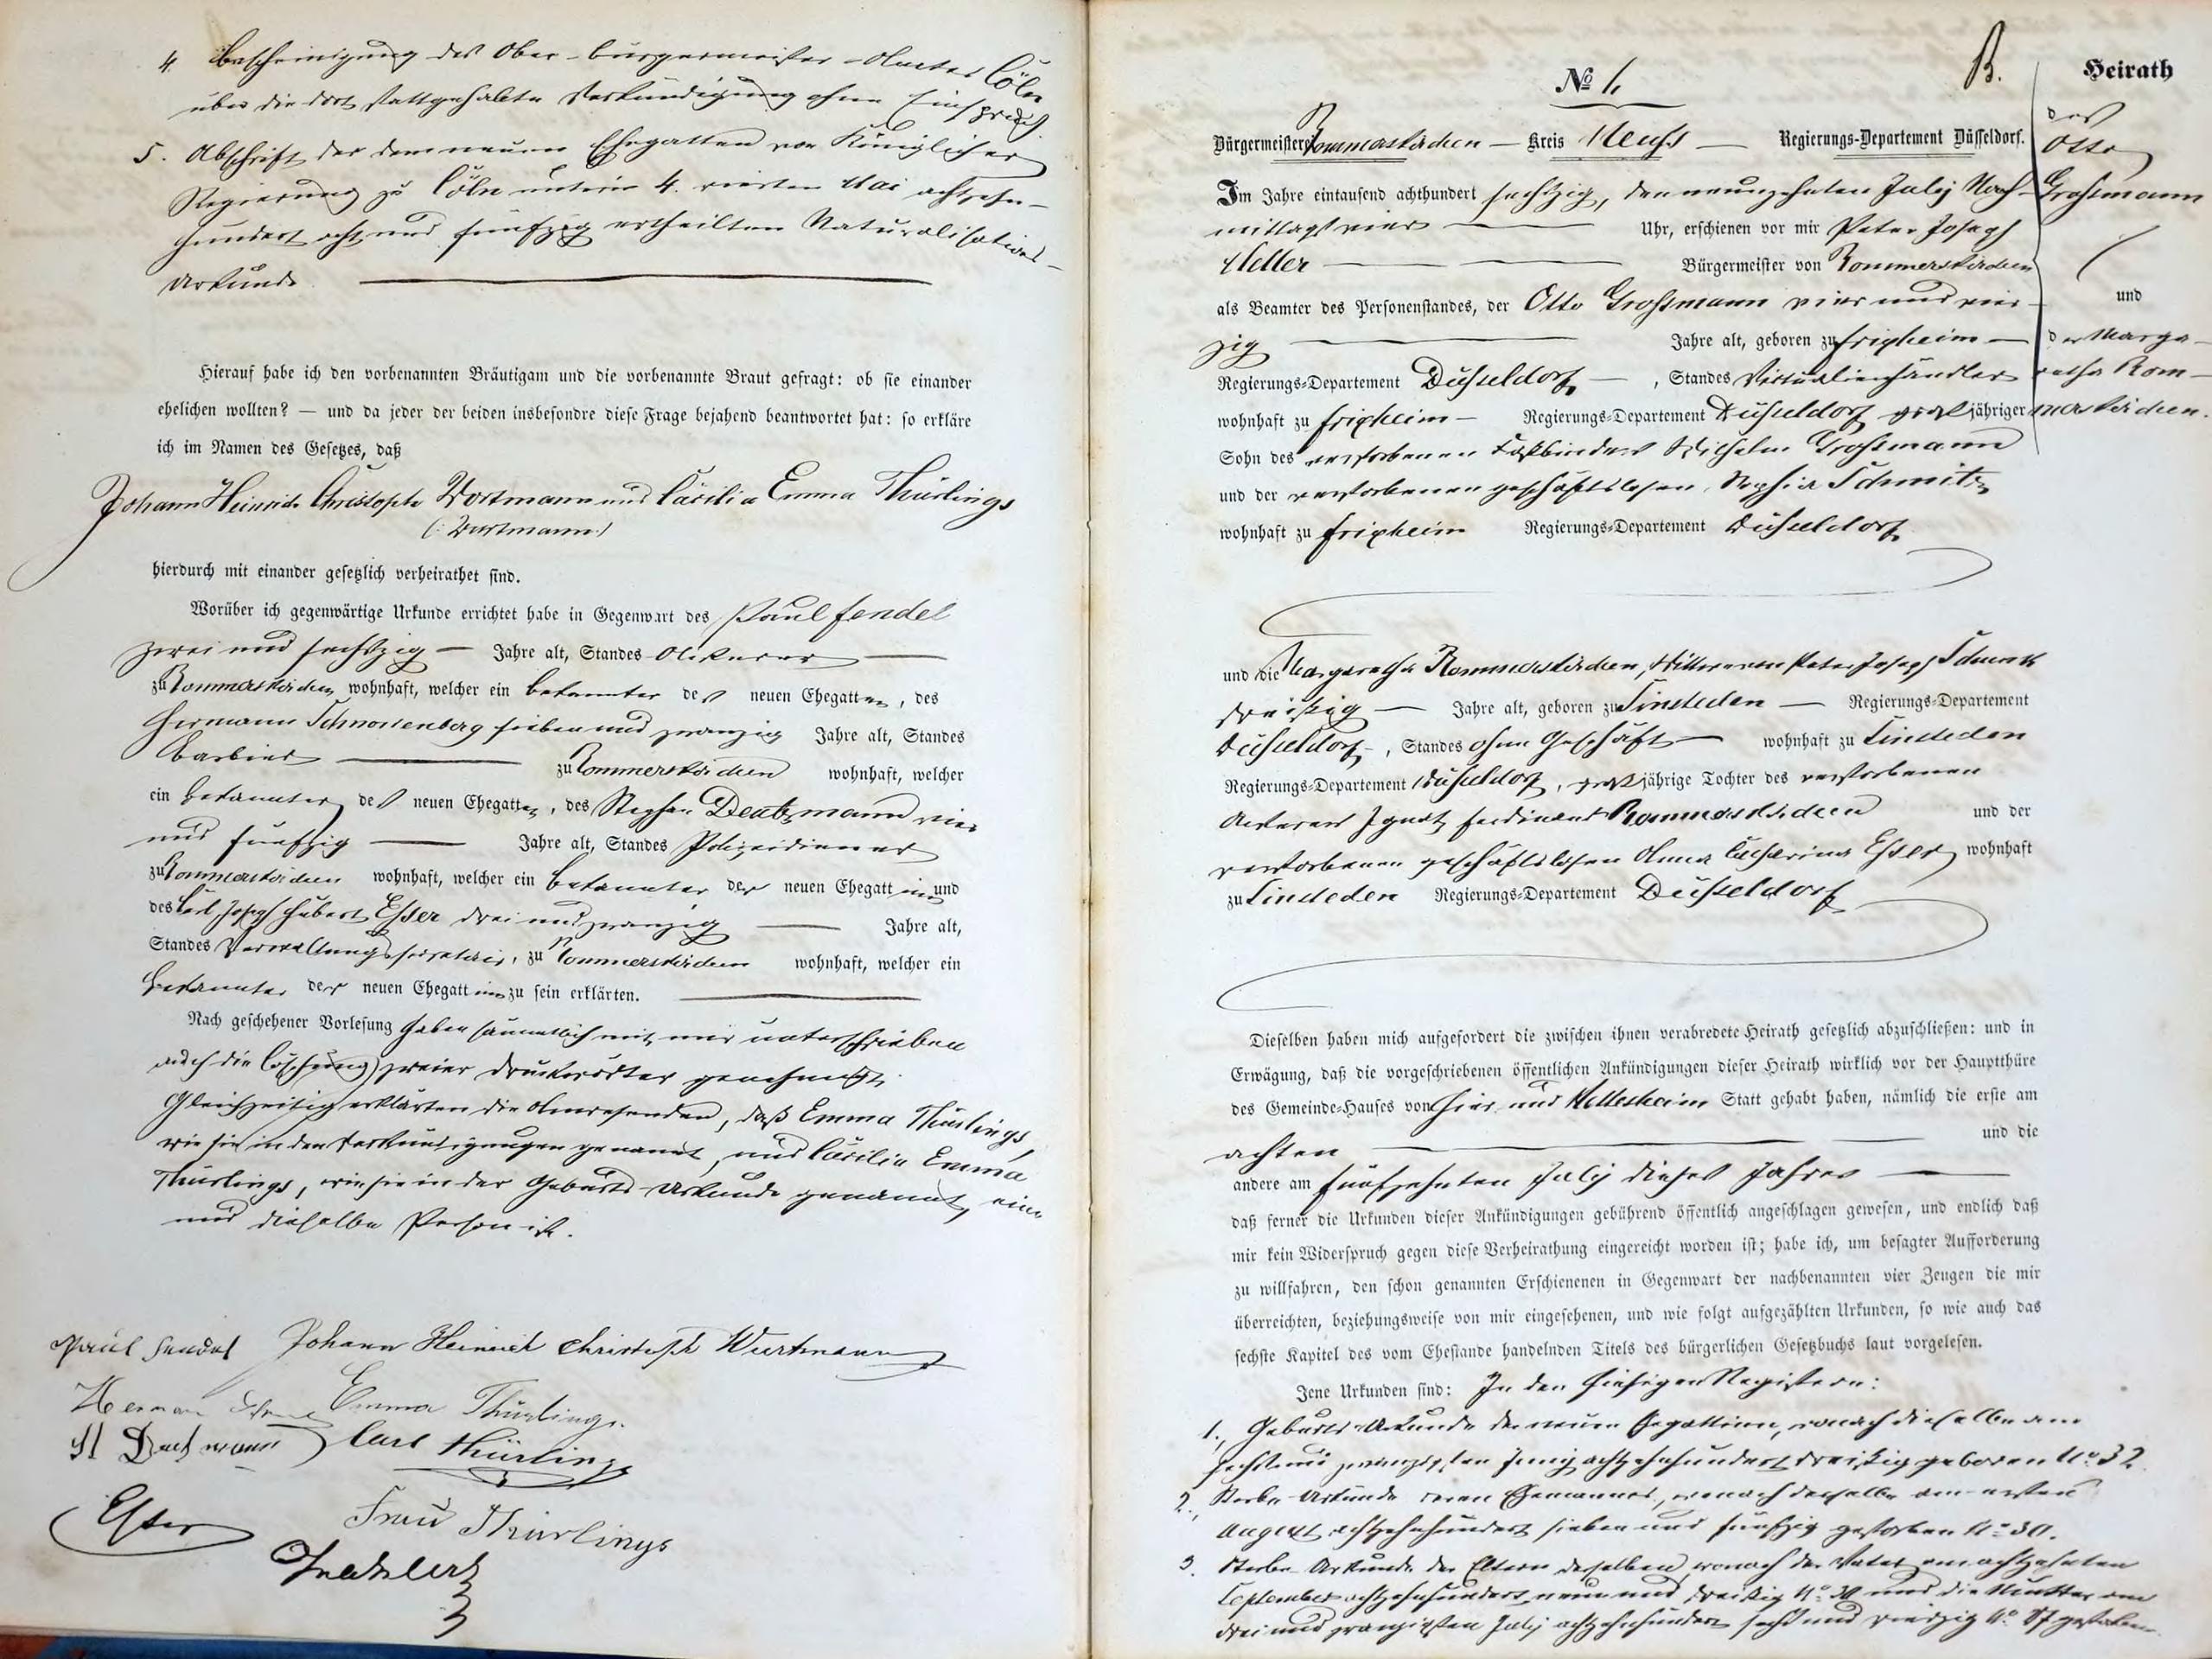 4. Bescheinigung des Ober-Bürgermeister-Amtes Cöln
über die dort stattgehabte Verkündigung ohne Einspruch.
5. Abschrift der dem neuen Ehegatten von Königlicher
Regierung zu Cöln unterm 4. vierten Mai achtzehn-
hundert acht und fünfzig ertheilten Naturalisations-
Urkunde.
Hierauf habe ich den vorbenannten Bräutigam und die vorbenannte Braut gefragt: ob sie einander
ehelichen wollten? — und da jeder der beiden insbesondre diese Frage bejahend beantwortet hat: so erkläre
ich im Namen des Gesetzes, daß
Johann Heinrich Christoph Wortmann und Cäcilia Emma Thürlings
(: Wurtmann :)
hierdurch mit einander gesetzlich verheirathet sind.
Worüber ich gegenwärtige Urkunde errichtet habe in Gegenwart des Paul Fendel
zwei und sechszig — Jahre alt, Standes Ackerer —
zu Rommerskirchen wohnhaft, welcher ein Bekannter des neuen Ehegatten, des
Hermann sieben und zwanzig Jahre alt, Standes
Barbier — zu Rommerskirchen wohnhaft, welcher
ein Bekannter des neuen Ehegatten, des Stephan vier
und fünfzig — Jahre alt, Standes Polizeidiener
zu Rommerskirchen wohnhaft, welcher ein Bekannter der neuen Ehegattin und
des Carl Joseph Hubert Esser drei und zwanzig — Jahre alt,
Standes Verwaltungssecretair, zu Rommerskirchen wohnhaft, welcher ein
Bekannter der neuen Ehegattin zu sein erklärten.
Nach geschehener Vorlesung haben sämmtlich mit mir unterschrieben
auch die Löschung zweier Druckwörter genehmigt.
Gleichzeitig erklärten die Anwesenden, daß Emma Thürlings,
wie sie in den Verkündigungen genannt, und Cäcilia Emma
Thürlings, wie sie in der Geburts-Urkunde genannt, eine
und dieselbe Person ist.
Paul Fendel Johann Heinrich Christoph Wurtmann
Herman Emma Thürlings.
St Carl Thürlings
Esser Frau Thürlings
No 6. B. Heirath
Bürgermeisterei Rommerskirchen — Kreis Neuss — Regierungs-Departement Düsseldorf.
des
Otto
Großmann
und
der Marga-
retha Rom-
merskirchen.
Im Jahre eintausend achthundert sechszig, den neunzehnten July Nach-
mittags vier — Uhr, erschienen vor mir Peter Joseph
— Bürgermeister von Rommerskirchen
als Beamter des Personenstandes, der Otto Großmann vier und vier-
zig — Jahre alt, geboren zu Frixheim —
Regierungs-Departement Düsseldorf —, Standes Victualienhändler
wohnhaft zu Frixheim — Regierungs-Departement Düsseldorf großjähriger
Sohn des verstorbenen Faßbinders Wilhelm Großmann
und der verstorbenen geschäftslosen Sophia Schmitz
wohnhaft zu Frixheim Regierungs-Departement Düsseldorf
und die Margaretha Rommerskirchen, Wittwe von Peter Joseph Schunk
dreißig — Jahre alt, geboren zu Sinsteden — Regierungs-Departement
Düsseldorf —, Standes ohne Geschäft — wohnhaft zu Sinsteden
Regierungs-Departement Düsseldorf, großjährige Tochter des verstorbenen
Ackerers Ignatz Ferdinand Rommerskirchen und der
verstorbenen geschäftslosen Anna Catharina Esser wohnhaft
zu Sinsteden Regierungs-Departement Düsseldorf
Dieselben haben mich aufgefordert die zwischen ihnen verabredete Heirath gesetzlich abzuschließen: und in
Erwägung, daß die vorgeschriebenen öffentlichen Ankündigungen dieser Heirath wirklich vor der Hauptthüre
des Gemeinde-Hauses von hier und Nettesheim Statt gehabt haben, nämlich die erste am
achten — und die
andere am fünfzehnten July dieses Jahres —
daß ferner die Urkunden dieser Ankündigungen gebührend öffentlich angeschlagen gewesen, und endlich daß
mir kein Widerspruch gegen diese Verheirathung eingereicht worden ist; habe ich, um besagter Aufforderung
zu willfahren, den schon genannten Erschienenen in Gegenwart der nachbenannten vier Zeugen die mir
überreichten, beziehungsweise von mir eingesehenen, und wie folgt aufgezählten Urkunden, so wie auch das
sechste Kapitel des vom Ehestande handelnden Titels des bürgerlichen Gesetzbuchs laut vorgelesen.
Jene Urkunden sind: In den hiesigen Registern:
1., Geburts-Urkunde der neuen Ehegattinn, wonach dieselbe am
sechs und zwanzigsten Juny achtzehnhundert dreißig geboren No 32.
2., Sterbe-Urkunde deren Ehemannes, wonach derselbe am ersten
August achtzehnhundert sieben und fünfzig gestorben No 30.
3. Sterbe-Urkunde der Eltern derselben, wonach der Vater am achtzehnten
September achtzehnhundert neun und dreißig No 30 und die Mutter am
drei und zwanzigsten July achtzehnhundert sechs und vierzig No 37 gestorben.